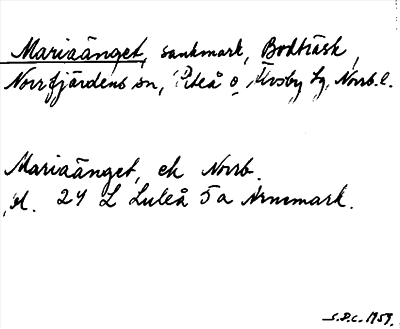 Mariaänget, sankmark, Bodträsk,
Norrfjärdens sn, Piteå o. Älvsby tg, Norrb. l.
Mariaänget, ek Norrb.
bl. 24 L Luleå 5a Arnemark.
S.P.C. 1959.